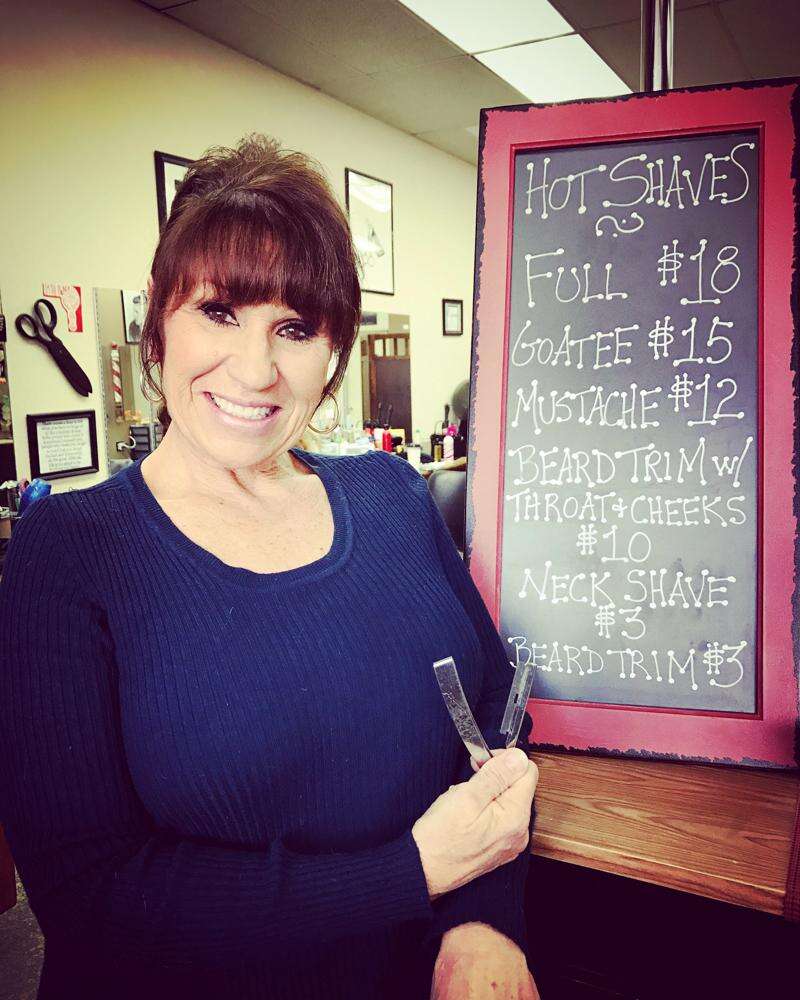 HOT SHAVES
FULL $18
GOATEE $15
MUSTACHE $12
BEARD TRIM w/
THROAT & CHEEKS
$10
NECK SHAVE
$3
BEARD TRIM $3